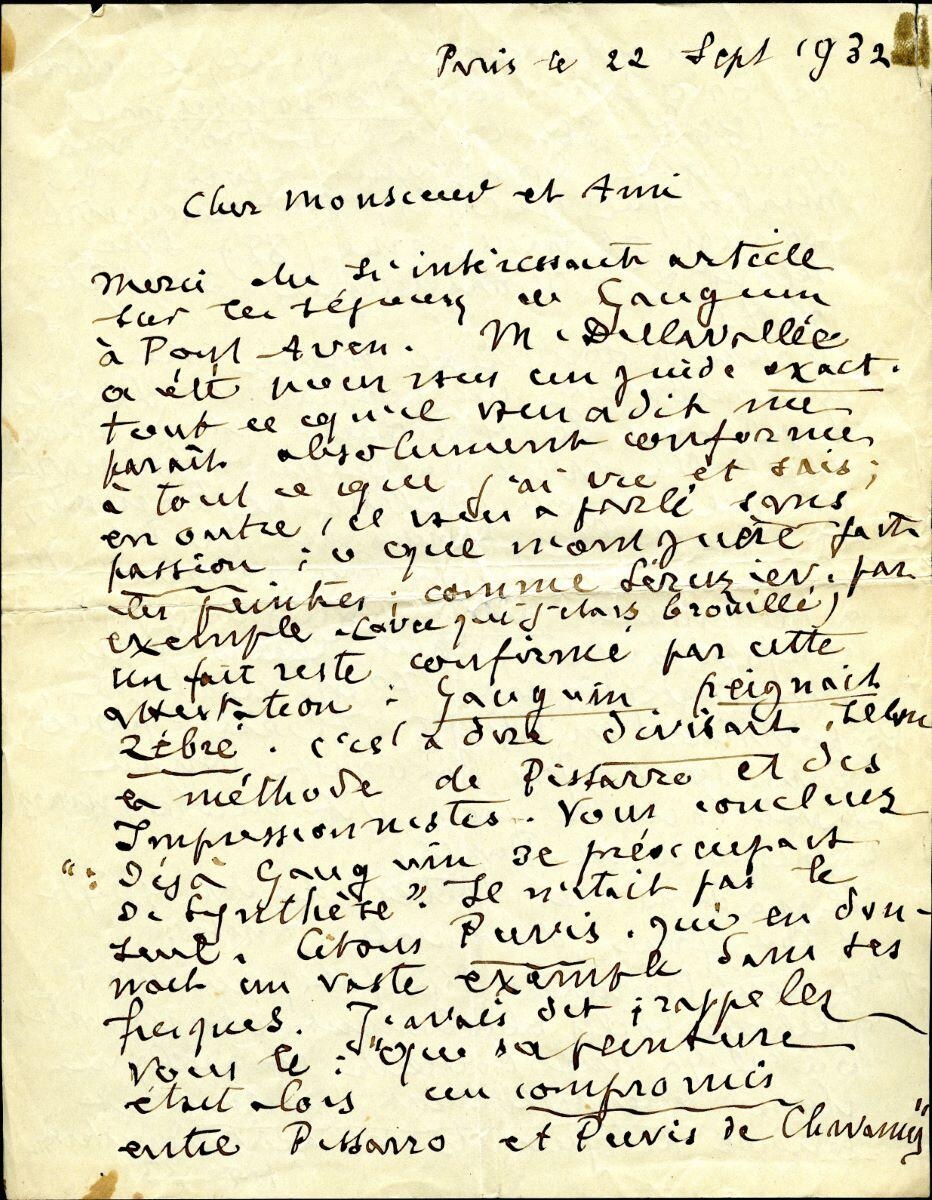 Paris le 22 Sept 1932
Cher Monsieur et Ami
Merci du si intéressant article
sur les séjours de Gauguin
à Pont-Aven. M. Dellavallée
a été pour vous un guide exact.
tout ce qu'il vous a dit me
paraît absolument conforme
à tout ce que j'ai vu et sais;
en outre, il vous a parlé sans
passion; ce que n'ont guère fait
les peintres; comme Sérusier, par
exemple (avec qui j'étais brouillé)
un fait reste confirmé par cette
attestation: Gauguin peignait
zèbré. c'est à dire divisait, selon
la méthode de Pissarro et des
Impressionnistes. Vous concluez
": Déjà Gauguin se préoccupait
de Synthèse". Il n'était pas le
seul. Citons Puvis, qui en don-
nait un vaste exemple dans ses
fresques. J'avais dit; rappelez
vous le: "que sa peinture
était alors un compromis
entre Pissarro et Puvis de Chavannes"